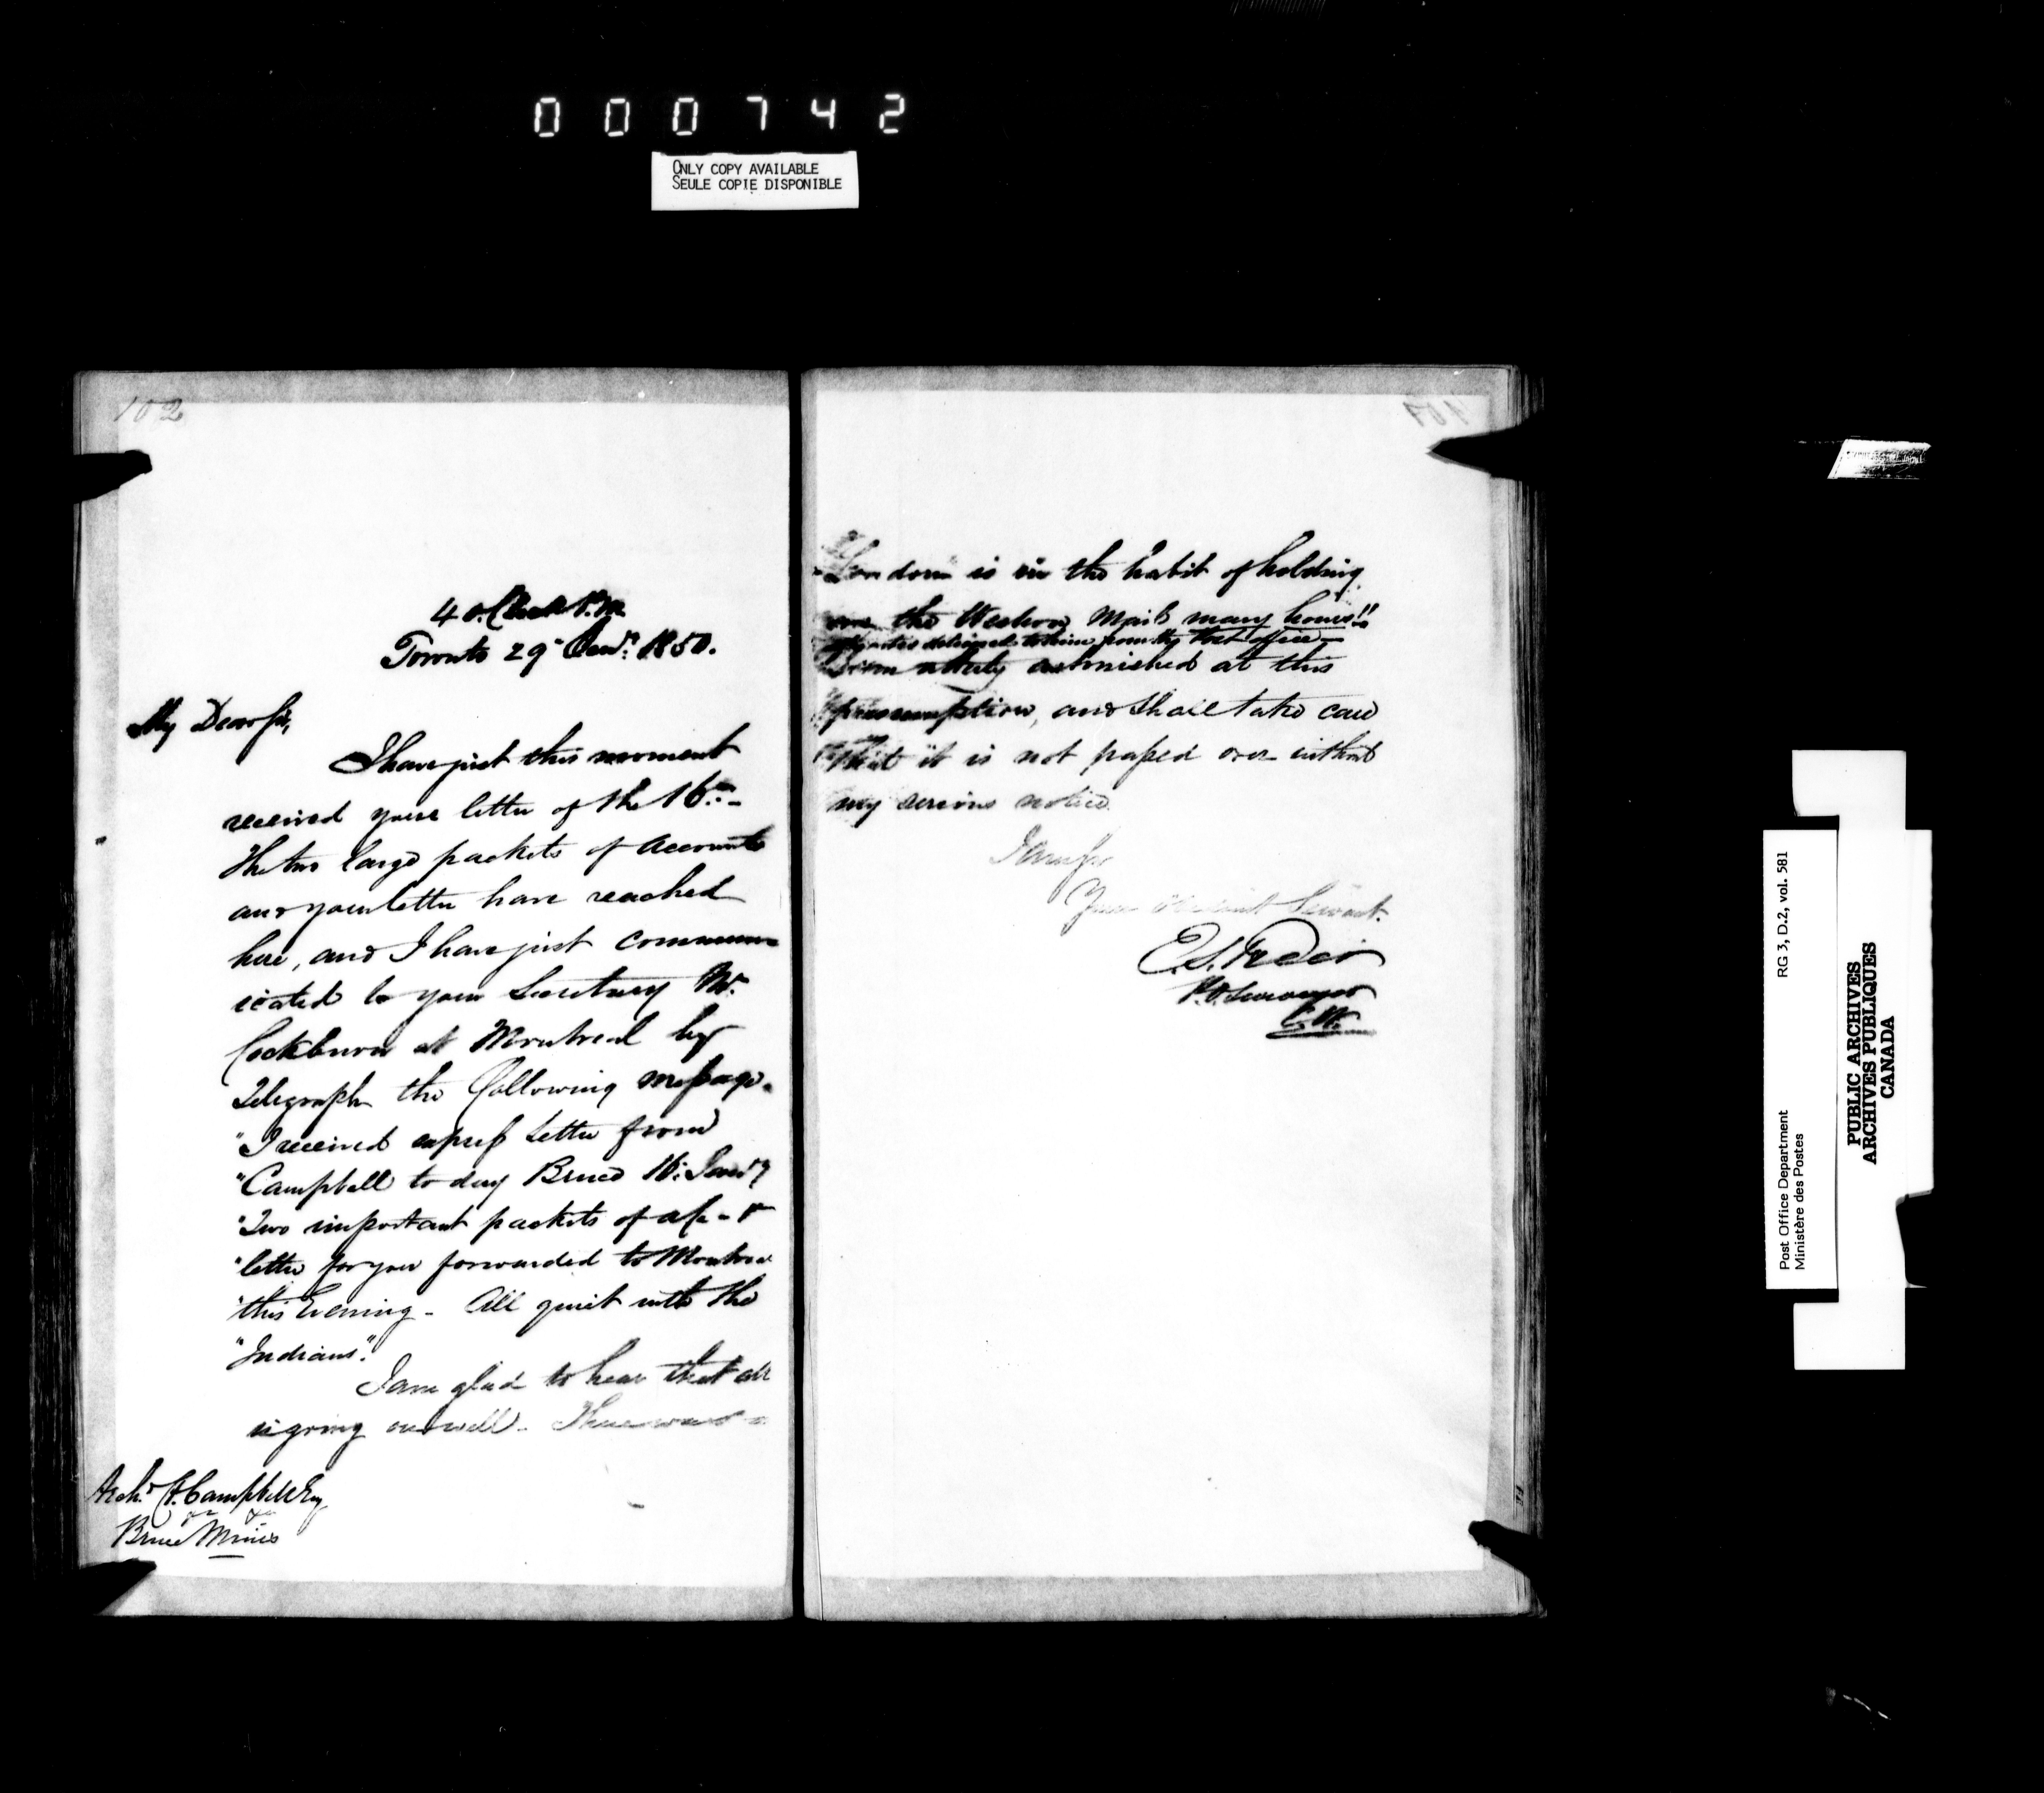 000742
ONLY COPY AVAILABLE
SEULE COPIE DISPONIBLE
102
4 o.Clock P.M.
Toronto 29th Jany. 1850.
My Dear Sir,
I have just this moment
received your letter of the 16th.-
The two large packets of Accounts
and your letter have reached
here, and I have just commun-
icated to your Secretary Mr.
Cockburn at Montreal by
Telegraph the following message.
"I received express Letter from
"Campbell to day Bruce 16: Jany
"Two important packets of a/c - &
"letter for you forwarded to Montreal
"this Evening - All quiet with the
"Indians".
I am glad to hear that all
is going on well -
Archd. H. Campbell Esq
Bruce Mines
London is in the habit of holding
the Western Mails many hours!!
delivered to him from the Post office -
I am utterly astonished at this
presumption, and shall take care
that it is not passed over without
my serious notice.
I am Sir
Your Obedient Servant.
E.S. Freer
P.O. Surveyor
C.W.
Post Office Department
Ministère des Postes
RG 3, D.2, vol. 581
PUBLIC ARCHIVES
ARCHIVES PUBLIQUES
CANADA